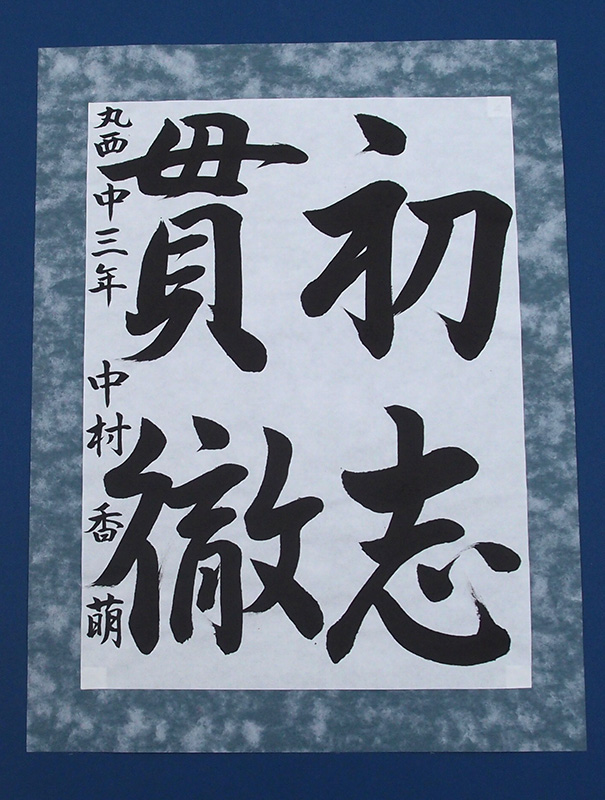 初志
貫徹
丸西中三年 中村香萌